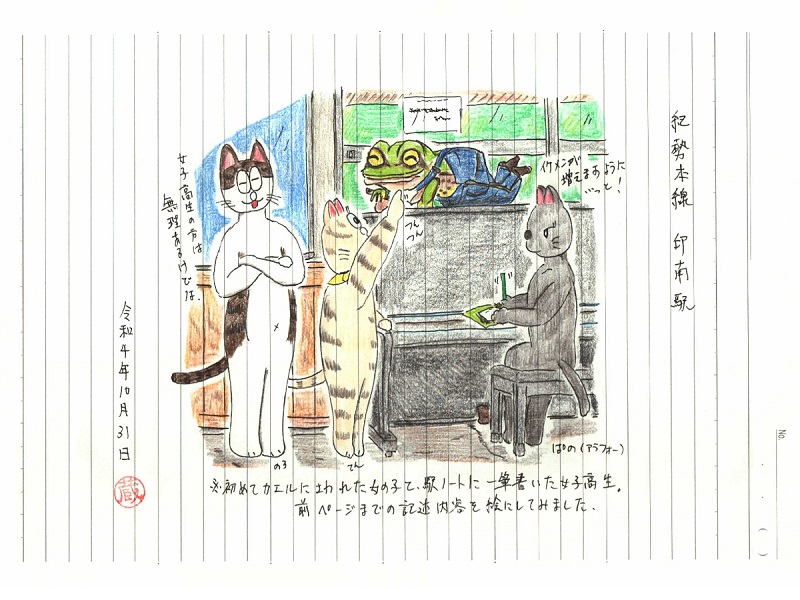 紀勢本線 印南駅
イケメンが
増えますように
…っと!
つん
つん
女子高生の方は
無理あるのでは。
のろ
てん
ぱの(アラフォー)
※初めてカエルに われた女の子と、駅ノートに一筆書いた女子高生。
前ページまでの記述内容を絵にしてみました.
令和4年10月31日
蔵
No.